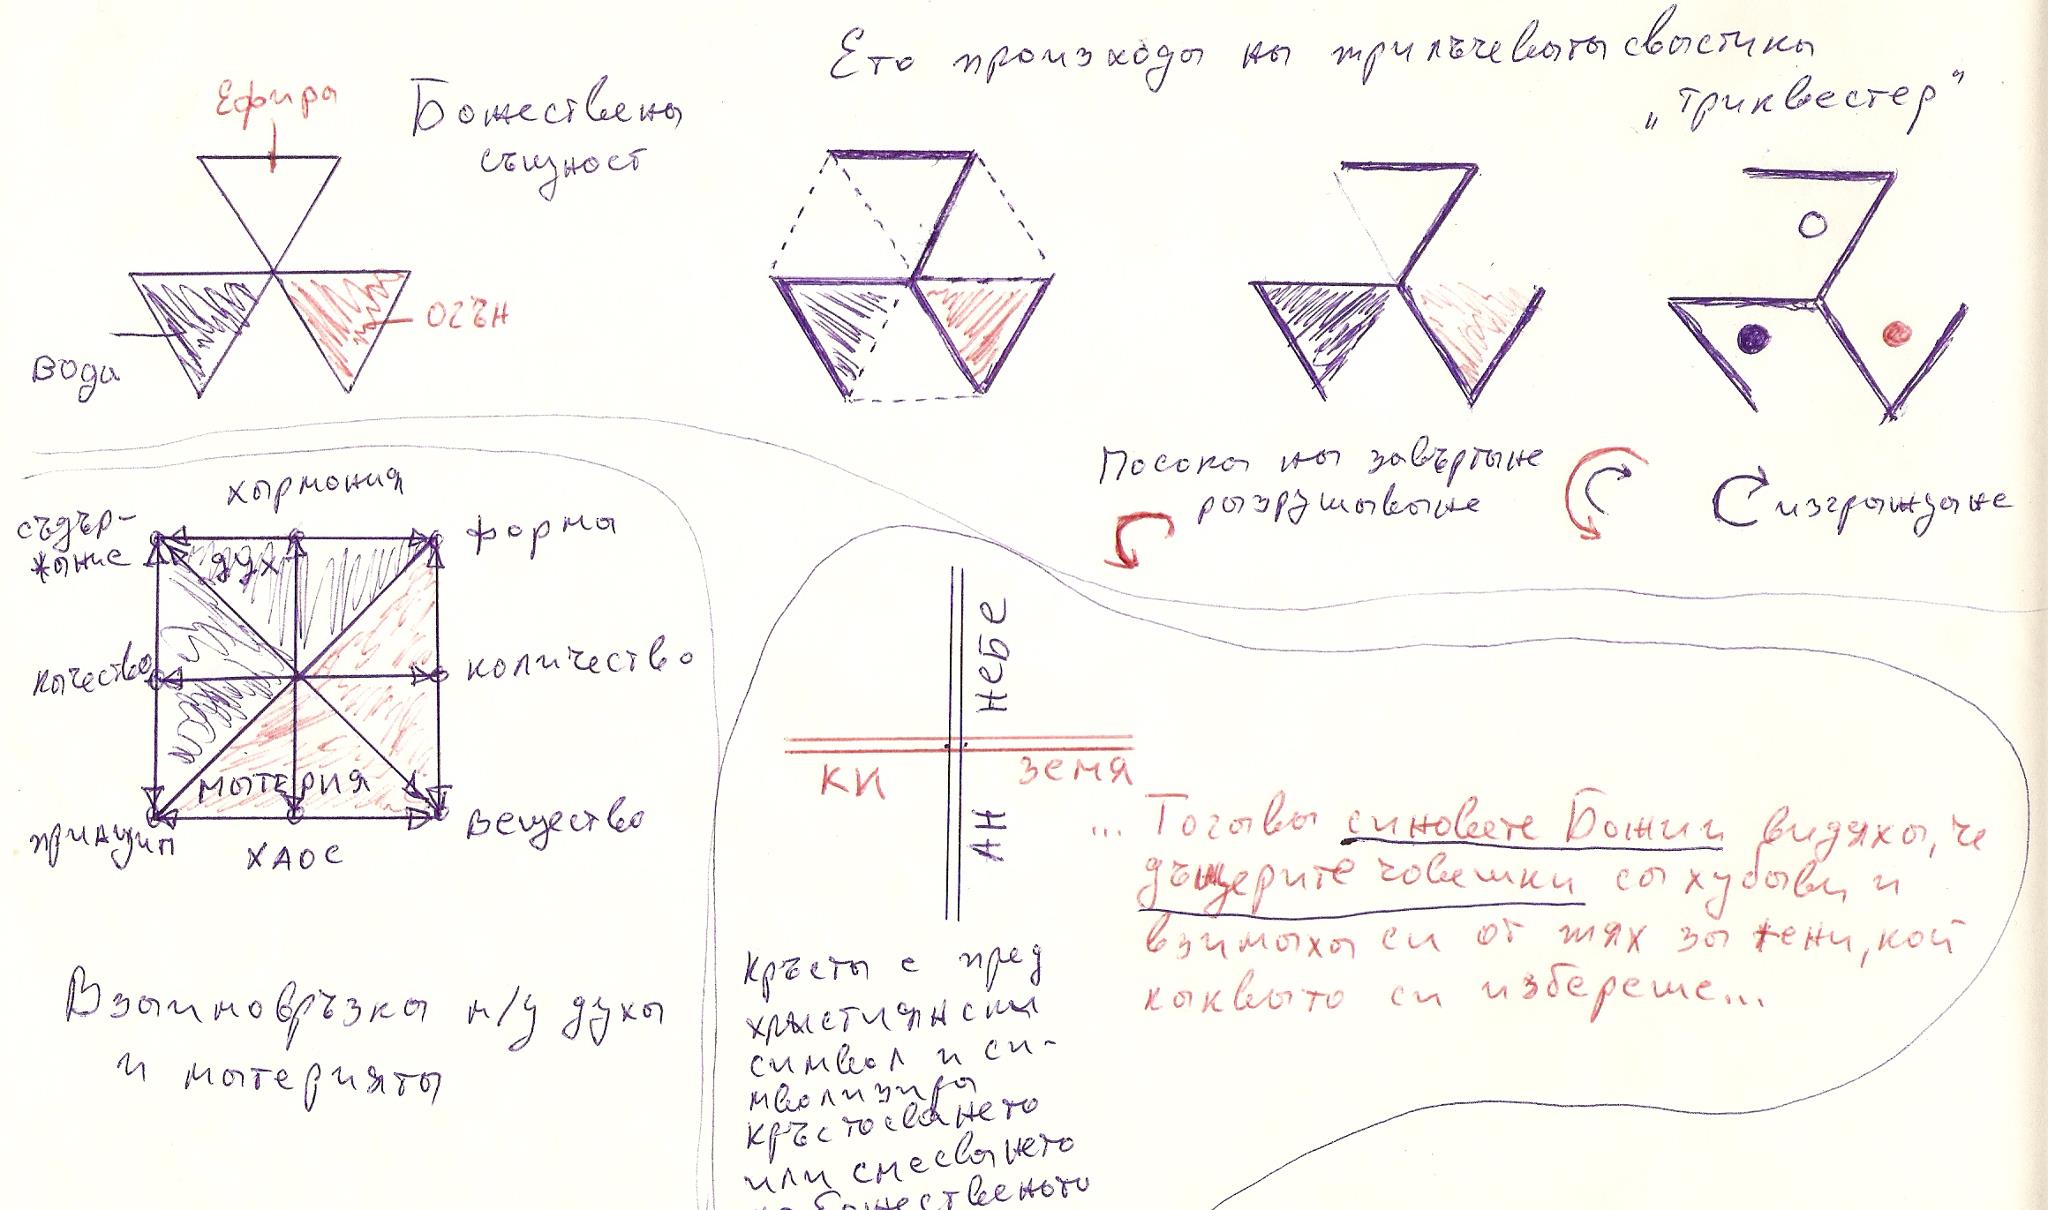 Ето произхода на трилъчевата свастика
„триквестер"
Ефира
Божествена
същност
вода
огън
Посока на завъртане
разрушаване
изграждане
хармония
съдър-
жание
форма
дух
качество
количество
материя
принцип
хаос
вещество
Взаимовръзка м/у духа
и материята
небе
ки
земя
ан
Кръста е пред
християнски
символ и си-
мволизира
кръстосването
или смесването
на божественото
... Тогава синовете Божии видяха, че
дъщерите човешки са хубави, и
взимаха си от тях за жени, кой
каквато си избереше...